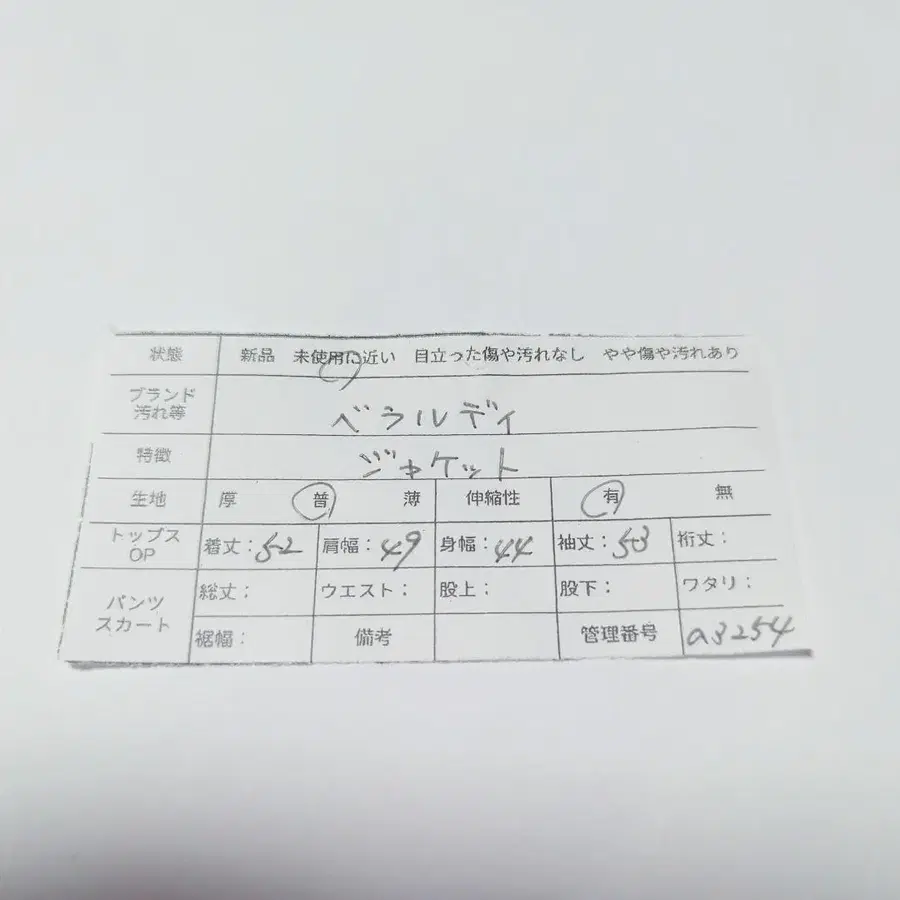 状態 新品 未使用に近い 目立った傷や汚れなし やや傷や汚れあり
ブランド
汚れ等 ベラルディ
特徴 ジャケット
生地 厚 普 薄 伸縮性 有 無
トップス
OP 着丈:52 肩幅:49 身幅:44 袖丈:53 裄丈:
パンツ
スカート 総丈: ウエスト: 股上: 股下: ワタリ:
裾幅: 備考 管理番号 a3254